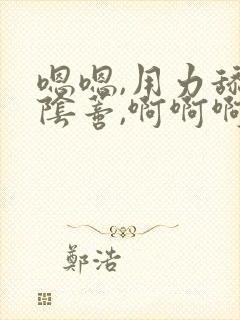 嗯嗯,用力舔
陰蒂,啊啊啊
鄭浩